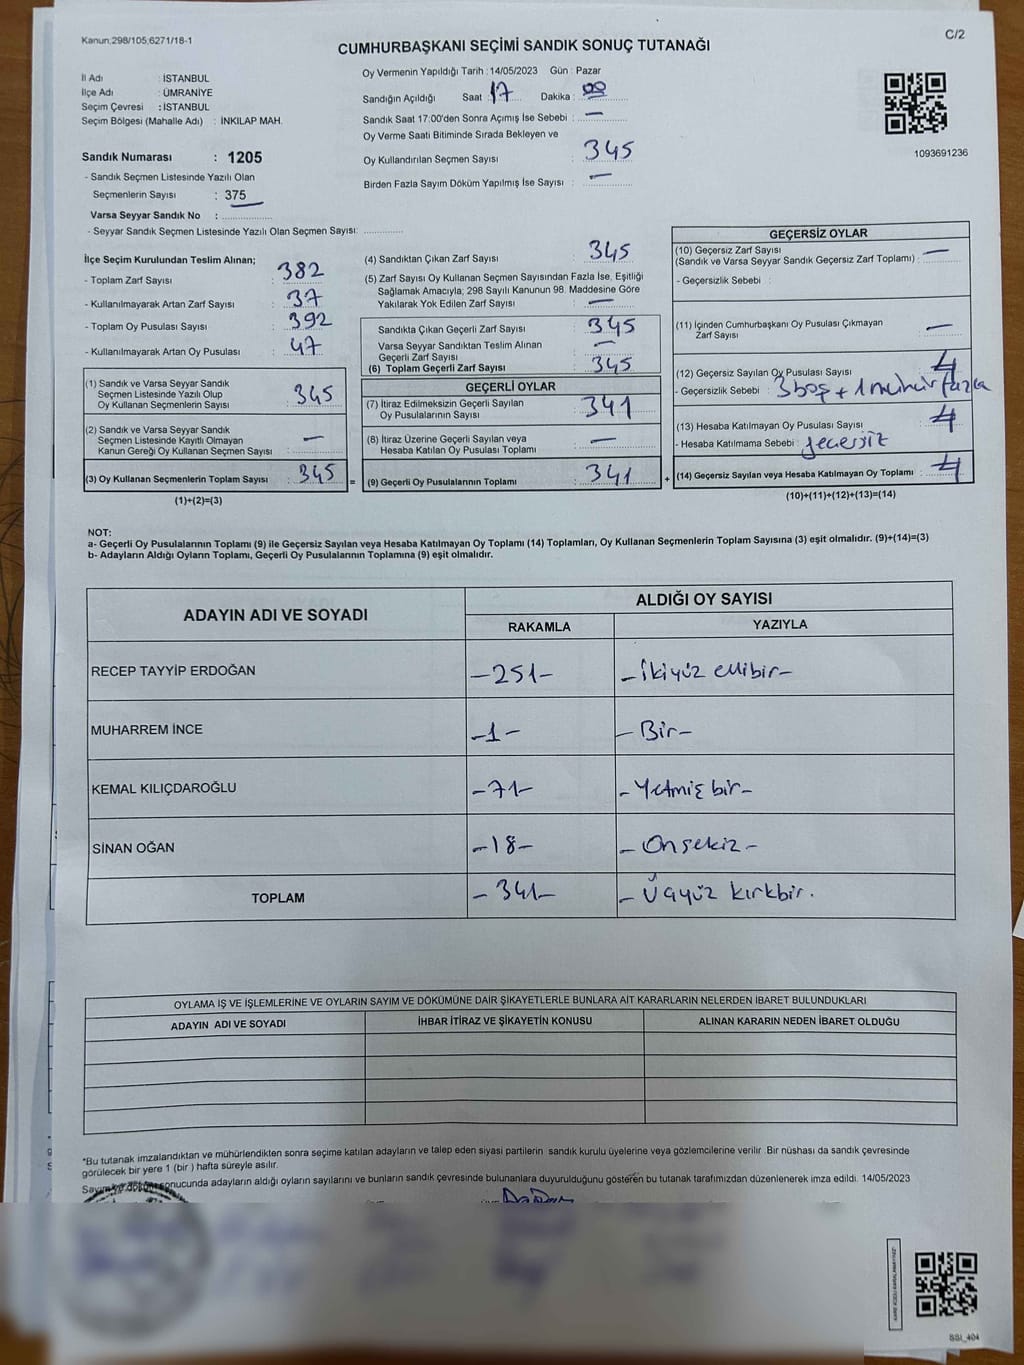 Kanun:298/105;6271/18-1
C/2
CUMHURBAŞKANI SEÇİMİ SANDIK SONUÇ TUTANAĞI
İl Adı : İSTANBUL
İlçe Adı : ÜMRANİYE
Seçim Çevresi : İSTANBUL
Seçim Bölgesi (Mahalle Adı) : İNKILAP MAH.
Oy Vermenin Yapıldığı Tarih : 14/05/2023 Gün : Pazar
Sandığın Açıldığı Saat : 17 Dakika : 00
Sandık Saat 17:00'den Sonra Açımış İse Sebebi : —
Oy Verme Saati Bitiminde Sırada Bekleyen ve
Oy Kullandırılan Seçmen Sayısı : 345
Birden Fazla Sayım Döküm Yapılmış İse Sayısı : —
1093691236
Sandık Numarası : 1205
- Sandık Seçmen Listesinde Yazılı Olan
Seçmenlerin Sayısı : 375
Varsa Seyyar Sandık No :
- Seyyar Sandık Seçmen Listesinde Yazılı Olan Seçmen Sayısı:
İlçe Seçim Kurulundan Teslim Alınan;
- Toplam Zarf Sayısı : 382
- Kullanılmayarak Artan Zarf Sayısı : 37
- Toplam Oy Pusulası Sayısı : 392
- Kullanılmayarak Artan Oy Pusulası : 47
(1) Sandık ve Varsa Seyyar Sandık
Seçmen Listesinde Yazılı Olup
Oy Kullanan Seçmenlerin Sayısı : 345
(2) Sandık ve Varsa Seyyar Sandık
Seçmen Listesinde Kayıtlı Olmayan
Kanun Gereği Oy Kullanan Seçmen Sayısı : —
(3) Oy Kullanan Seçmenlerin Toplam Sayısı : 345 =
(1)+(2)=(3)
(4) Sandıktan Çıkan Zarf Sayısı : 345
(5) Zarf Sayısı Oy Kullanan Seçmen Sayısından Fazla İse, Eşitliği
Sağlamak Amacıyla; 298 Sayılı Kanunun 98. Maddesine Göre
Yakılarak Yok Edilen Zarf Sayısı : —
Sandıkta Çıkan Geçerli Zarf Sayısı : 345
Varsa Seyyar Sandıktan Teslim Alınan
Geçerli Zarf Sayısı : —
(6) Toplam Geçerli Zarf Sayısı : 345
GEÇERLİ OYLAR
(7) İtiraz Edilmeksizin Geçerli Sayılan
Oy Pusulalarının Sayısı : 341
(8) İtiraz Üzerine Geçerli Sayılan veya
Hesaba Katılan Oy Pusulası Toplamı : —
(9) Geçerli Oy Pusulalarının Toplamı : 341 +
GEÇERSİZ OYLAR
(10) Geçersiz Zarf Sayısı
(Sandık ve Varsa Seyyar Sandık Geçersiz Zarf Toplamı) : —
- Geçersizlik Sebebi :
(11) İçinden Cumhurbaşkanı Oy Pusulası Çıkmayan
Zarf Sayısı : —
(12) Geçersiz Sayılan Oy Pusulası Sayısı : 4
- Geçersizlik Sebebi : 3 boş + 1 mühür fazla
(13) Hesaba Katılmayan Oy Pusulası Sayısı : 4
- Hesaba Katılmama Sebebi : geçersiz
(14) Geçersiz Sayılan veya Hesaba Katılmayan Oy Toplamı : 4
(10)+(11)+(12)+(13)=(14)
NOT:
a- Geçerli Oy Pusulalarının Toplamı (9) ile Geçersiz Sayılan veya Hesaba Katılmayan Oy Toplamı (14) Toplamları, Oy Kullanan Seçmenlerin Toplam Sayısına (3) eşit olmalıdır. (9)+(14)=(3)
b- Adayların Aldığı Oyların Toplamı, Geçerli Oy Pusulalarının Toplamına (9) eşit olmalıdır.
ADAYIN ADI VE SOYADI ALDIĞI OY SAYISI
RAKAMLA YAZIYLA
RECEP TAYYİP ERDOĞAN -251- -İkiyüz ellibir-
MUHARREM İNCE -1- -Bir-
KEMAL KILIÇDAROĞLU -71- -Yetmiş bir-
SİNAN OĞAN -18- -Onsekiz-
TOPLAM -341- -Üçyüz kırkbir.
OYLAMA İŞ VE İŞLEMLERİNE VE OYLARIN SAYIM VE DÖKÜMÜNE DAİR ŞİKAYETLERLE BUNLARA AİT KARARLARIN NELERDEN İBARET BULUNDUKLARI
ADAYIN ADI VE SOYADI İHBAR İTİRAZ VE ŞİKAYETİN KONUSU ALINAN KARARIN NEDEN İBARET OLDUĞU
*Bu tutanak imzalandıktan ve mühürlendikten sonra seçime katılan adayların ve talep eden siyasi partilerin sandık kurulu üyelerine veya gözlemcilerine verilir. Bir nüshası da sandık çevresinde
görülecek bir yere 1 (bir) hafta süreyle asılır.
Sayım ve döküm sonucunda adayların aldığı oyların sayılarını ve bunların sandık çevresinde bulunanlara duyurulduğunu gösteren bu tutanak tarafımızdan düzenlenerek imza edildi. 14/05/2023
SSI_404